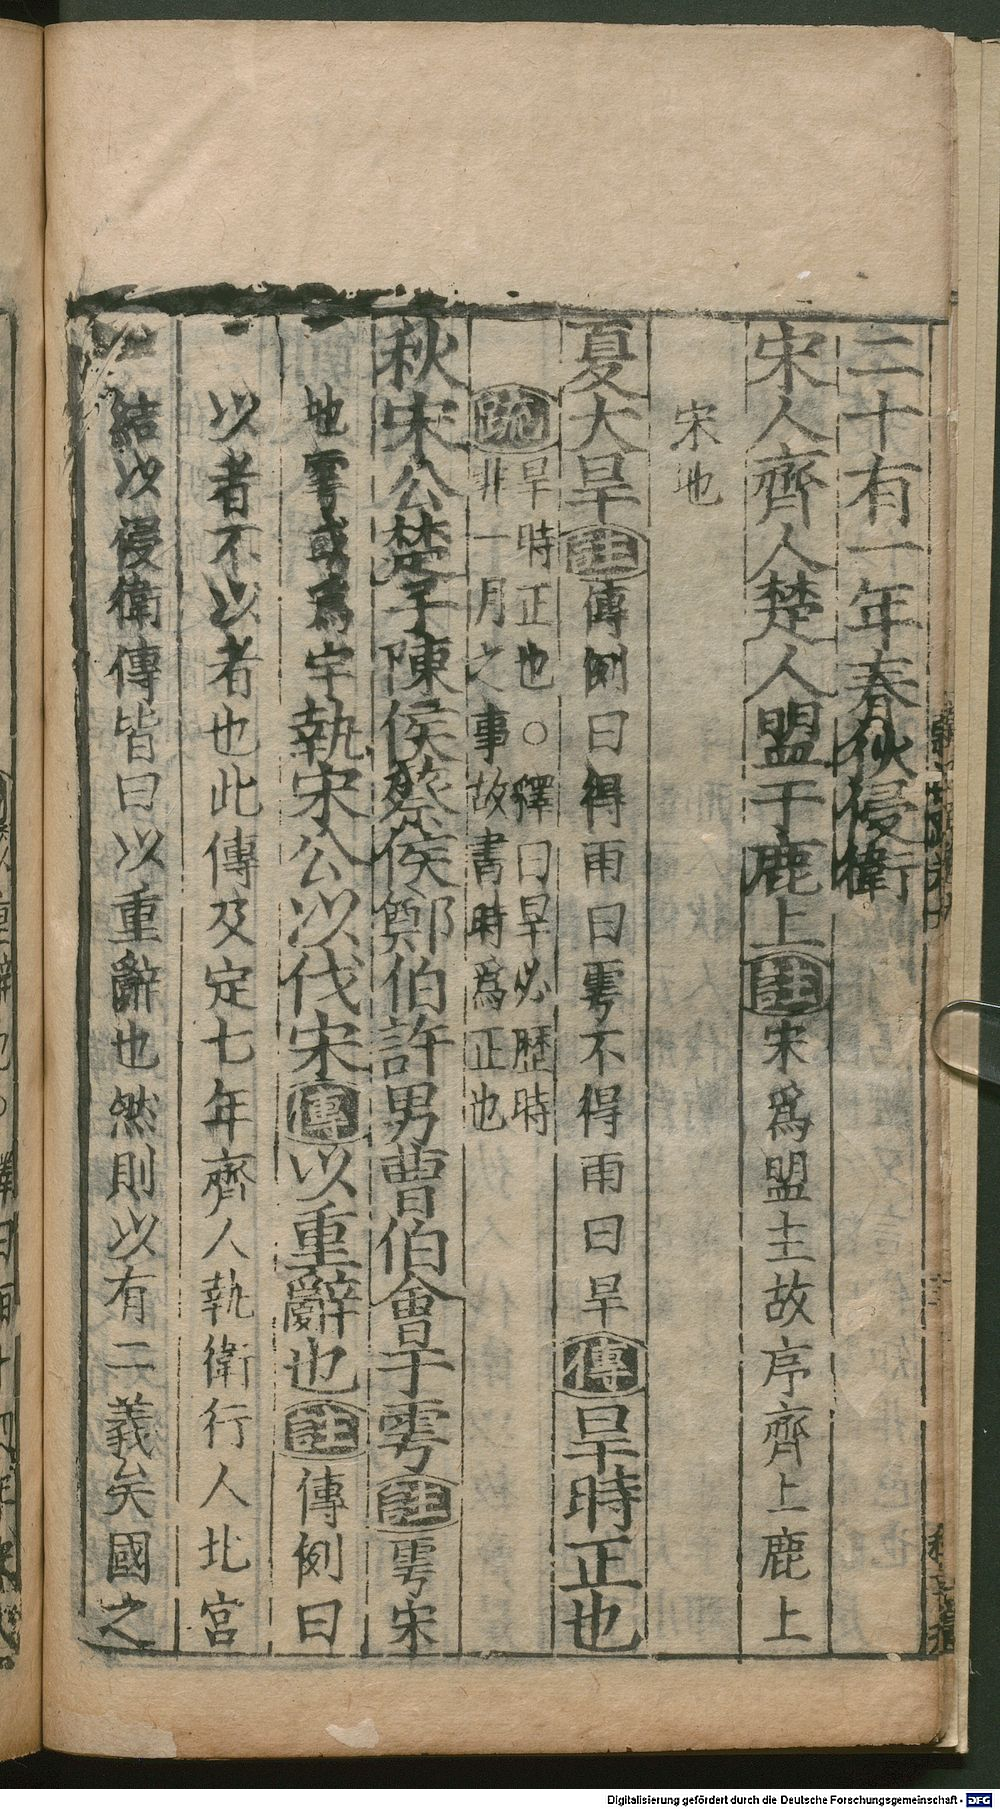 二十有一年春狄侵衛
宋人齊人楚人盟于鹿上註宋爲盟主故序齊上鹿上
宋地
夏大旱註傳例曰得雨曰雩不得雨曰旱傳旱時正也
疏旱時正也○釋曰旱必歷時
非一月之事故書時爲正也
秋宋公楚子陳侯蔡侯鄭伯許男曹伯會于雩註雩宋
地雩或爲宇執宋公以伐宋傳以重辭也註傳例曰
以者不以者也此傳及定七年齊人執衛行人北宮
結以侵衛傳皆曰以重辭也然則以有二義矣國之
Digitalisierung gefördert durch die Deutsche Forschungsgemeinschaft - DFG